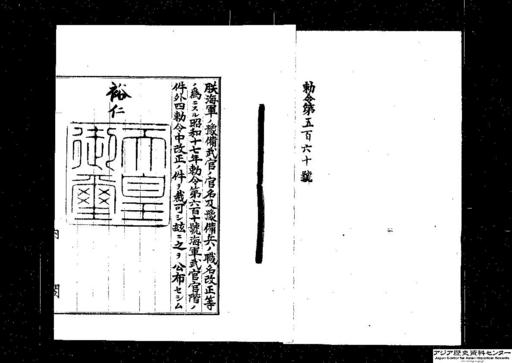 勅令第五百六十號
朕海軍ノ豫備武官ノ官名及豫備兵ノ職名改正等
ノ爲ニスル昭和十七年勅令第六百十號海軍武官官階ノ
件外四勅令中改正ノ件ヲ裁可シ玆ニ之ヲ公布セシム
裕仁
天皇
御璽
内
閣
アジア歴史資料センター
Japan Center for Asian Historical Records